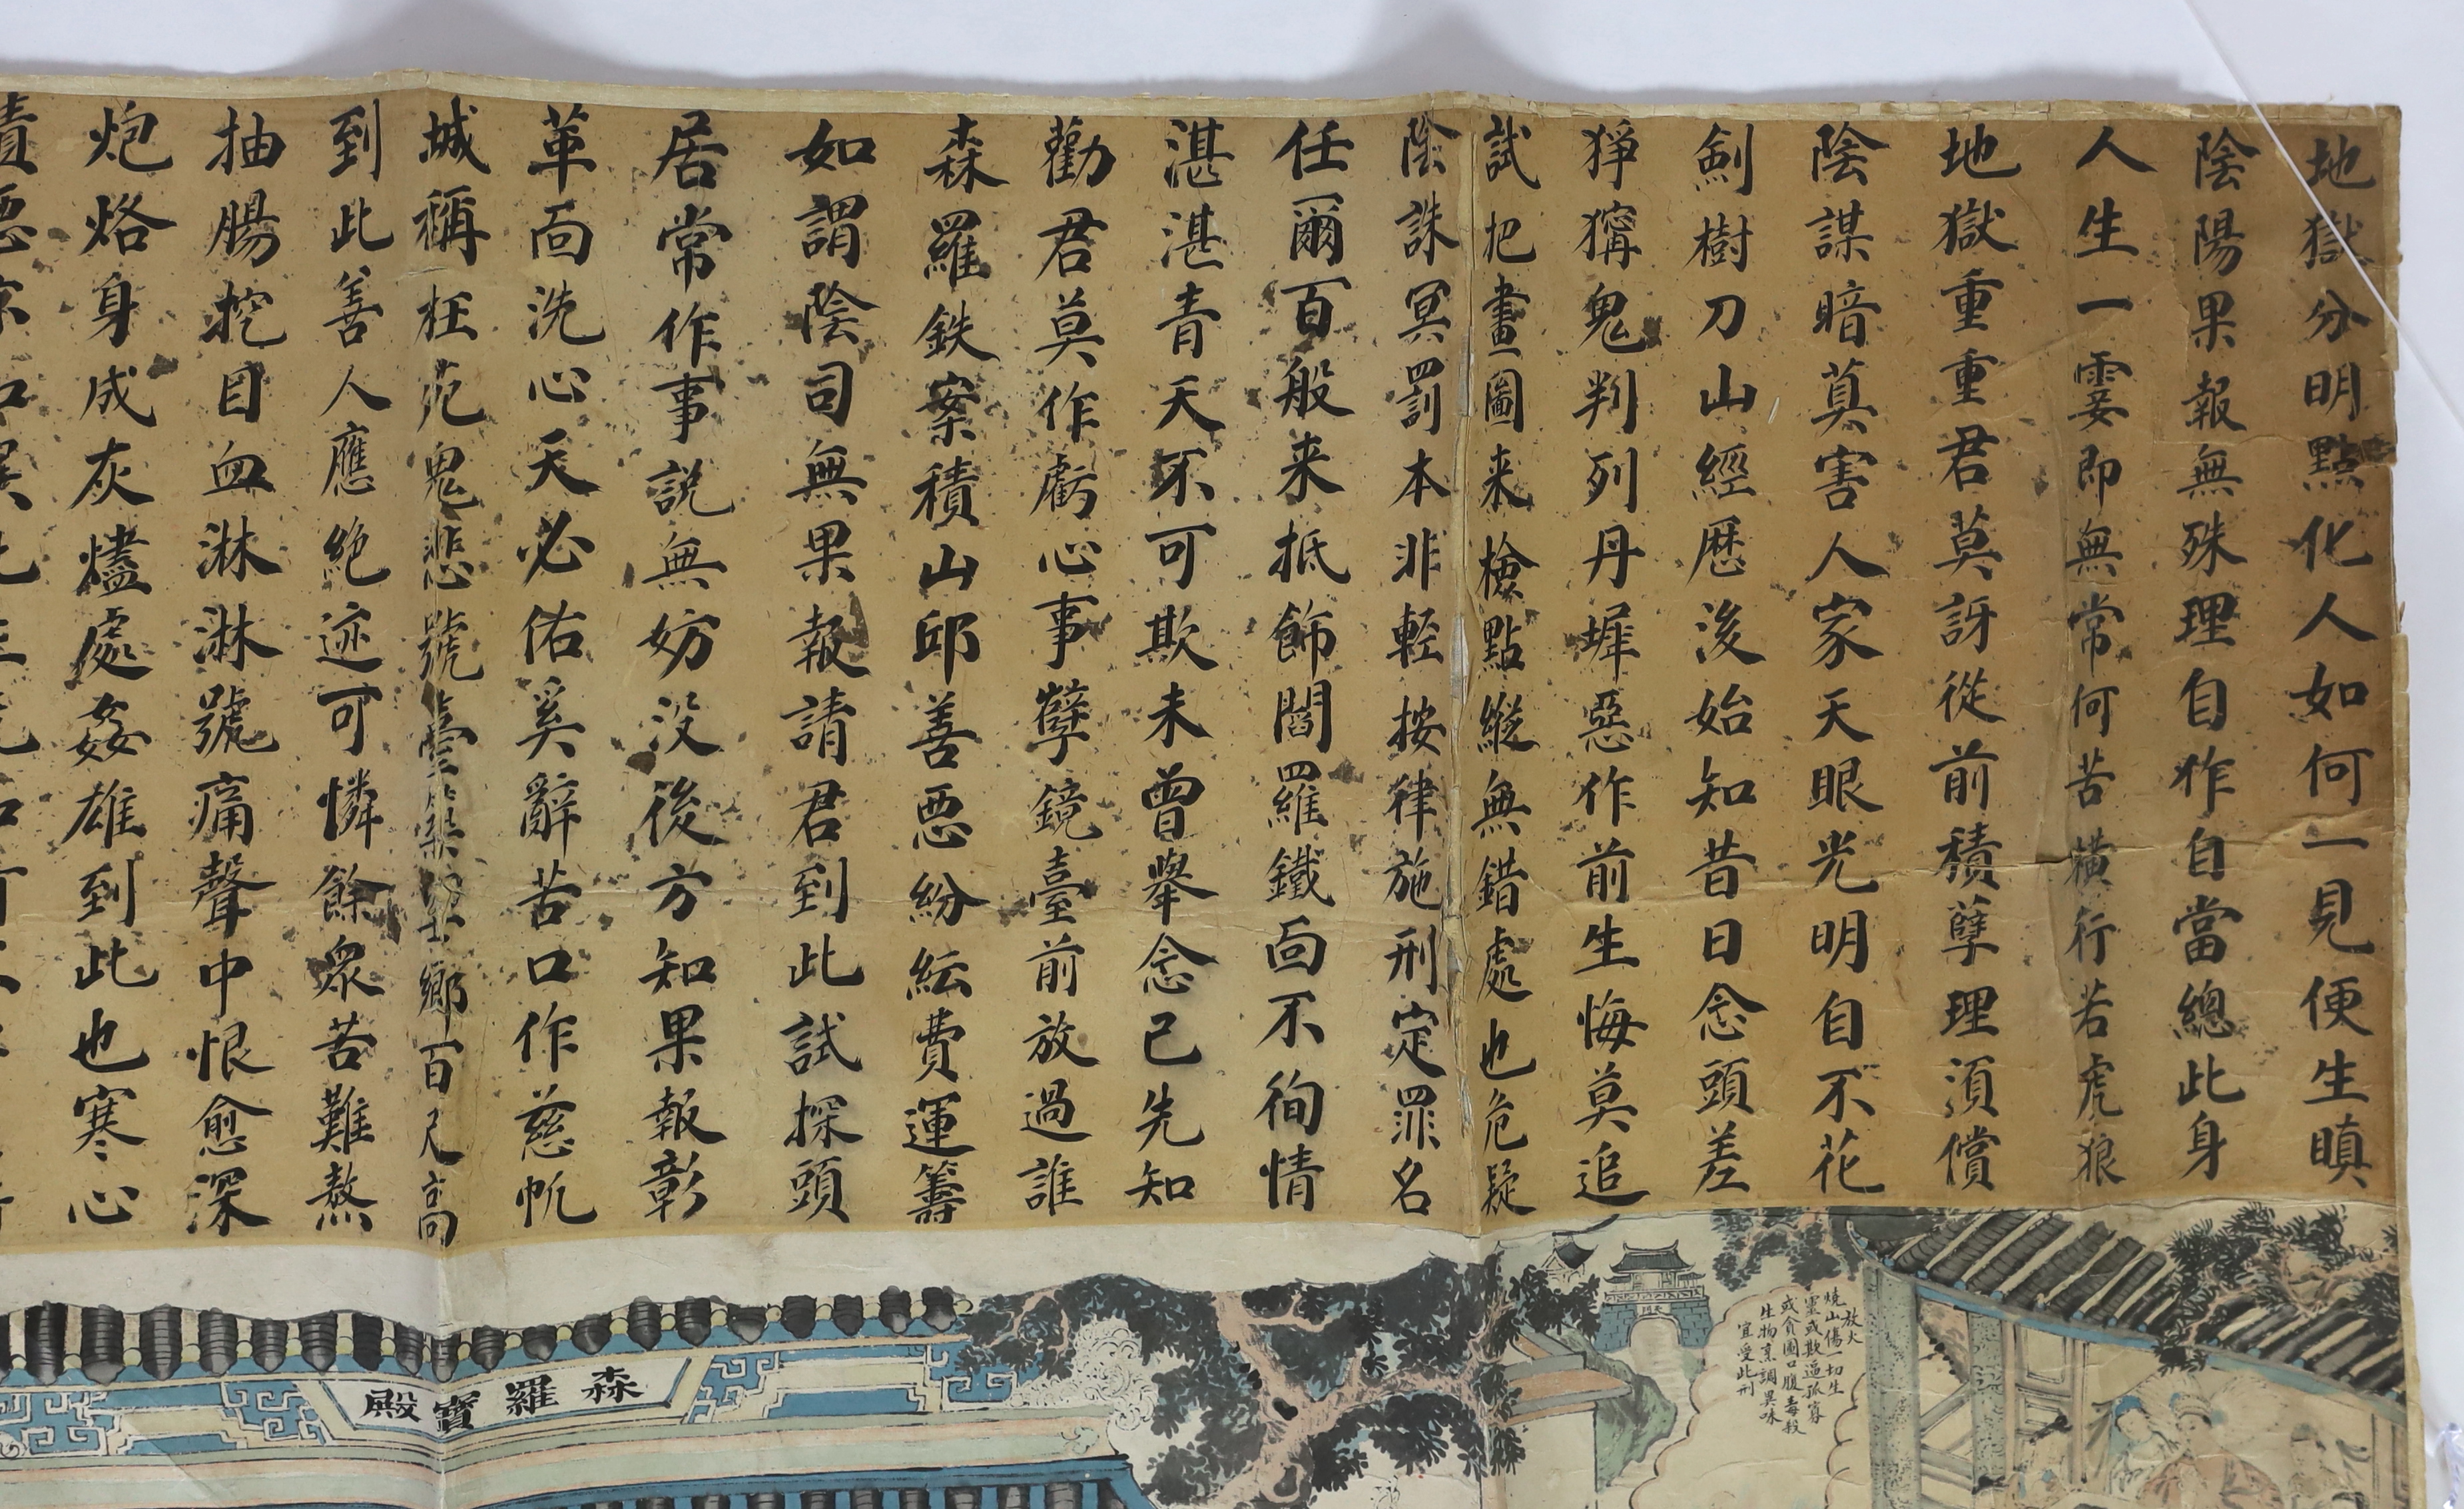 地獄分明點化人如何一見便生瞋
陰陽果報無殊理自作自當總此身
人生一霎即無常何苦橫行若虎狼
地獄重重君莫訝從前積孽理須償
陰謀暗莫害人家天眼光明自不花
劍樹刀山經歷後始知昔日念頭差
猙獰鬼判列丹墀惡作前生悔莫追
試把畫圖來檢點縱無錯處也危疑
陰誅冥罰本非輕按律施刑定罪名
任爾百般来抵飾閻羅鐵面不徇情
湛湛青天不可欺未曾舉念已先知
勸君莫作虧心事孽鏡臺前放過誰
森羅鉄案積山邱善惡紛紜費運籌
如謂陰司無果報請君到此試探頭
居常作事説無妨没後方知果報彰
革面洗心天必佑奚辭苦口作慈帆
城稱枉死鬼悲號臺築望鄉百尺高
到此善人應絶迹可憐餘衆苦難熬
抽腸挖目血淋淋號痛聲中恨愈深
炮烙身成灰燼處姦雄到此也寒心
放火
燒山傷一切生
靈或欺逼孤寡
或貪圖口腹毒殺
生物烹調異味
宜受此刑
森羅寶殿